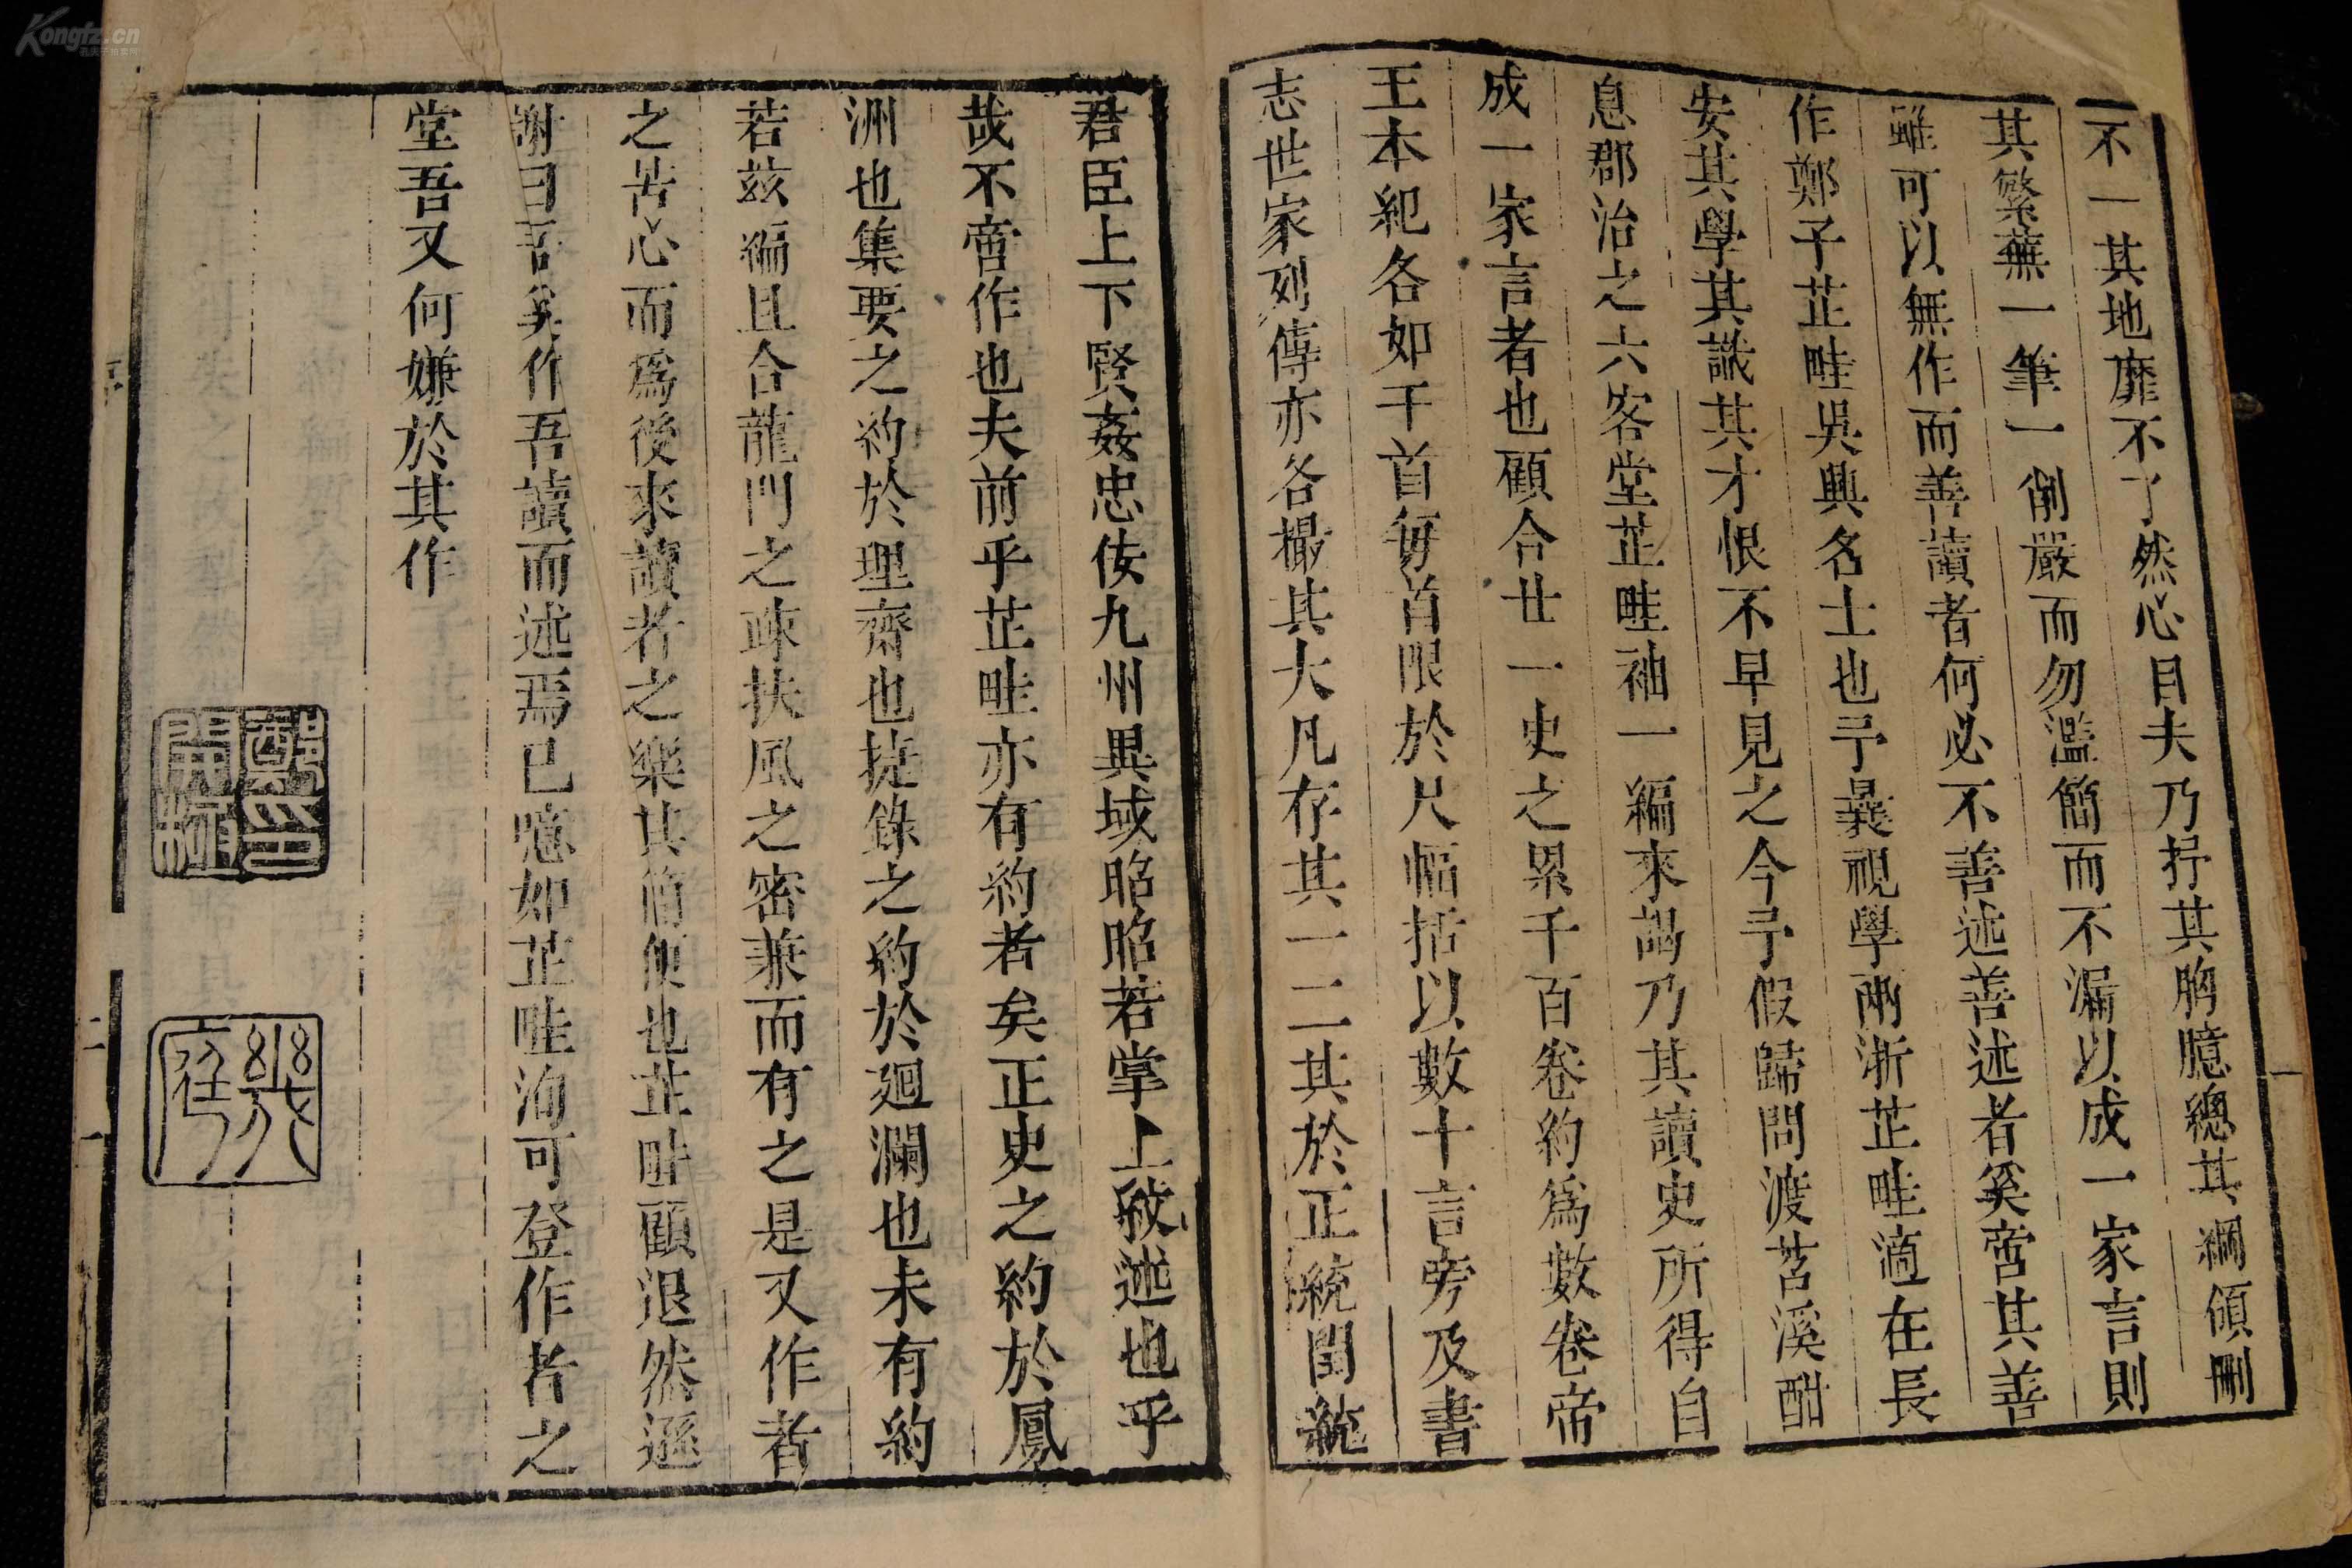 不一其地靡不了然心目夫乃抒其胸臆總其綱領刪
其繁蕪一筆一削嚴而勿濫簡而不漏以成一家言則
雖可以無作而善讀者何必不善述善述者奚啻其善
作鄭子芷畦吳興名士也予曩視學兩浙芷畦適在長
安其學其識其才恨不早見之今予假歸問渡苕溪酣
息郡治之六客堂芷畦袖一編來謁乃其讀史所得自
成一家言者也顧合廿一史之累千百卷約為數卷帝
王本紀各如干首每首限於尺幅括以數十言旁及書
志世家列傳亦各撮其大凡存其一二其於正統閏統
君臣上下賢姦忠佞九州異域昭昭若掌上紋述也乎
哉不啻作也夫前乎芷畦亦有約者矣正史之約於鳳
洲也集要之約於理齋也捷錄之約於廻瀾也未有約
若茲編且合龍門之疎扶風之密兼而有之是又作者
之苦心而為後來讀者之樂其簡便也芷畦顧退然遜
謝曰吾奚作吾讀而述焉已噫如芷畦洵可登作者之
堂吾又何嫌於其作
鄭印
開極
幾庭
序
二
一
Kongfz.cn